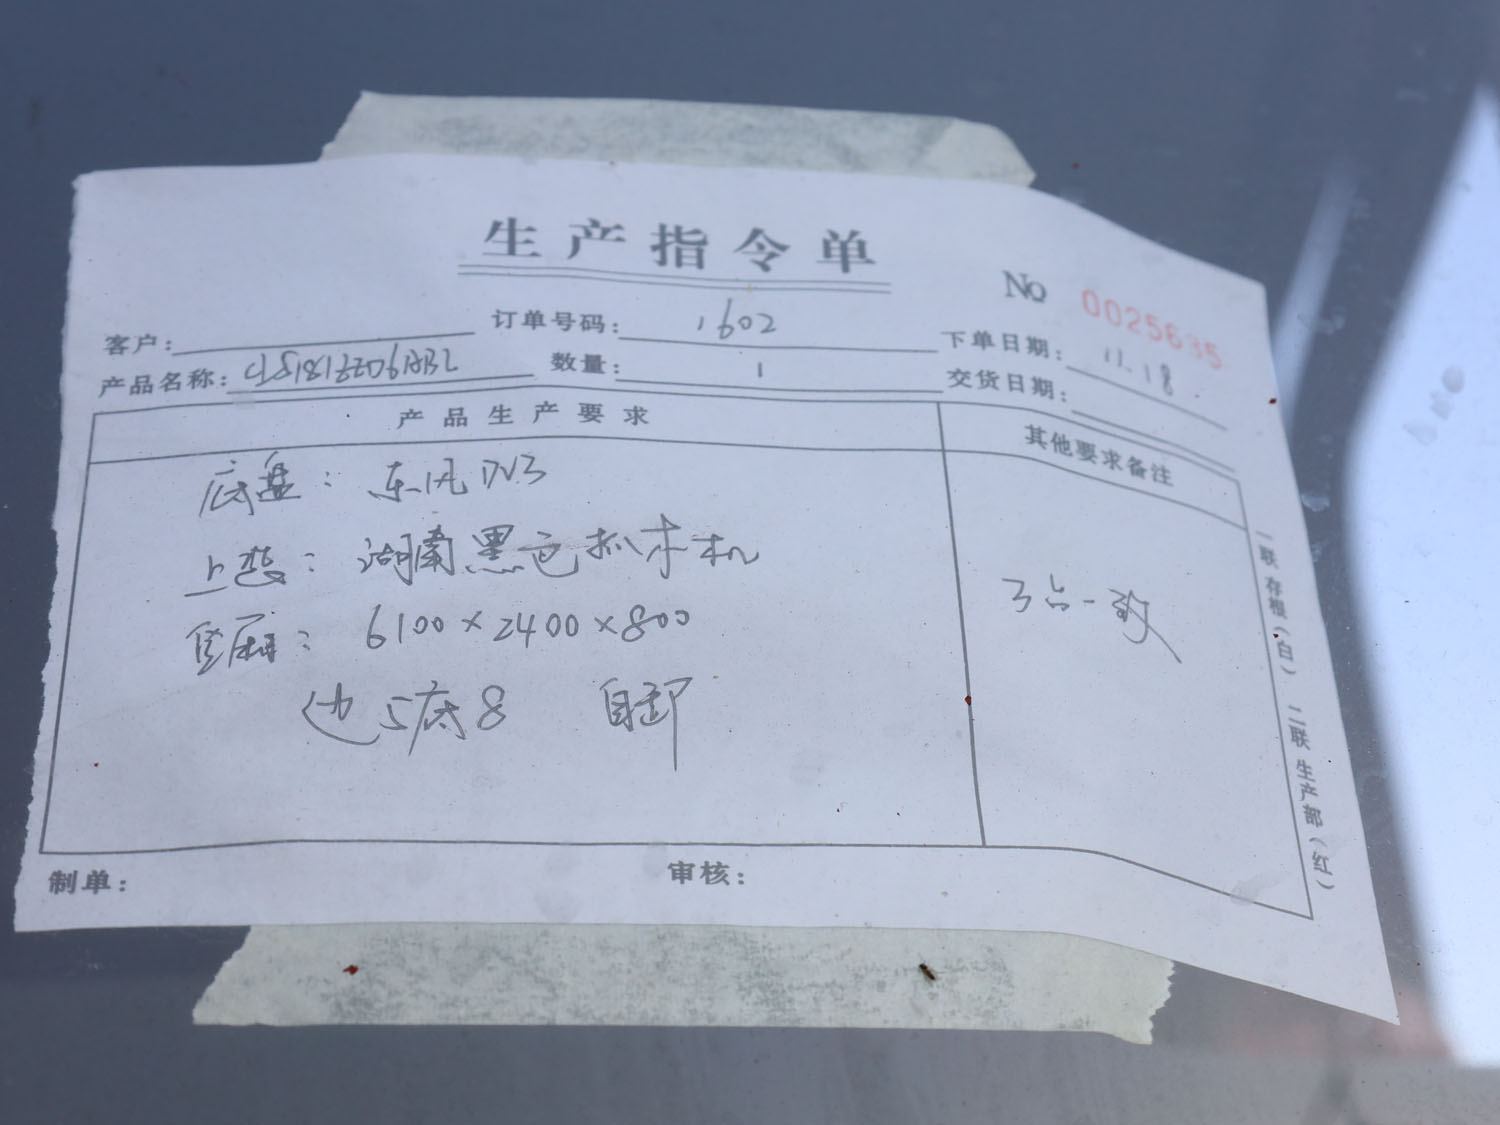 生产指令单
No 0025635
客户： 订单号码：1602 下单日期：11.18
产品名称： 数量：1 交货日期：
产品生产要求 其他要求备注
底盘：东风DV3
上装：湖南黑色抓木机
货厢：6100×2400×800
边5底8 自卸
一致
制单： 审核：
一联存根（白） 二联生产部（红）